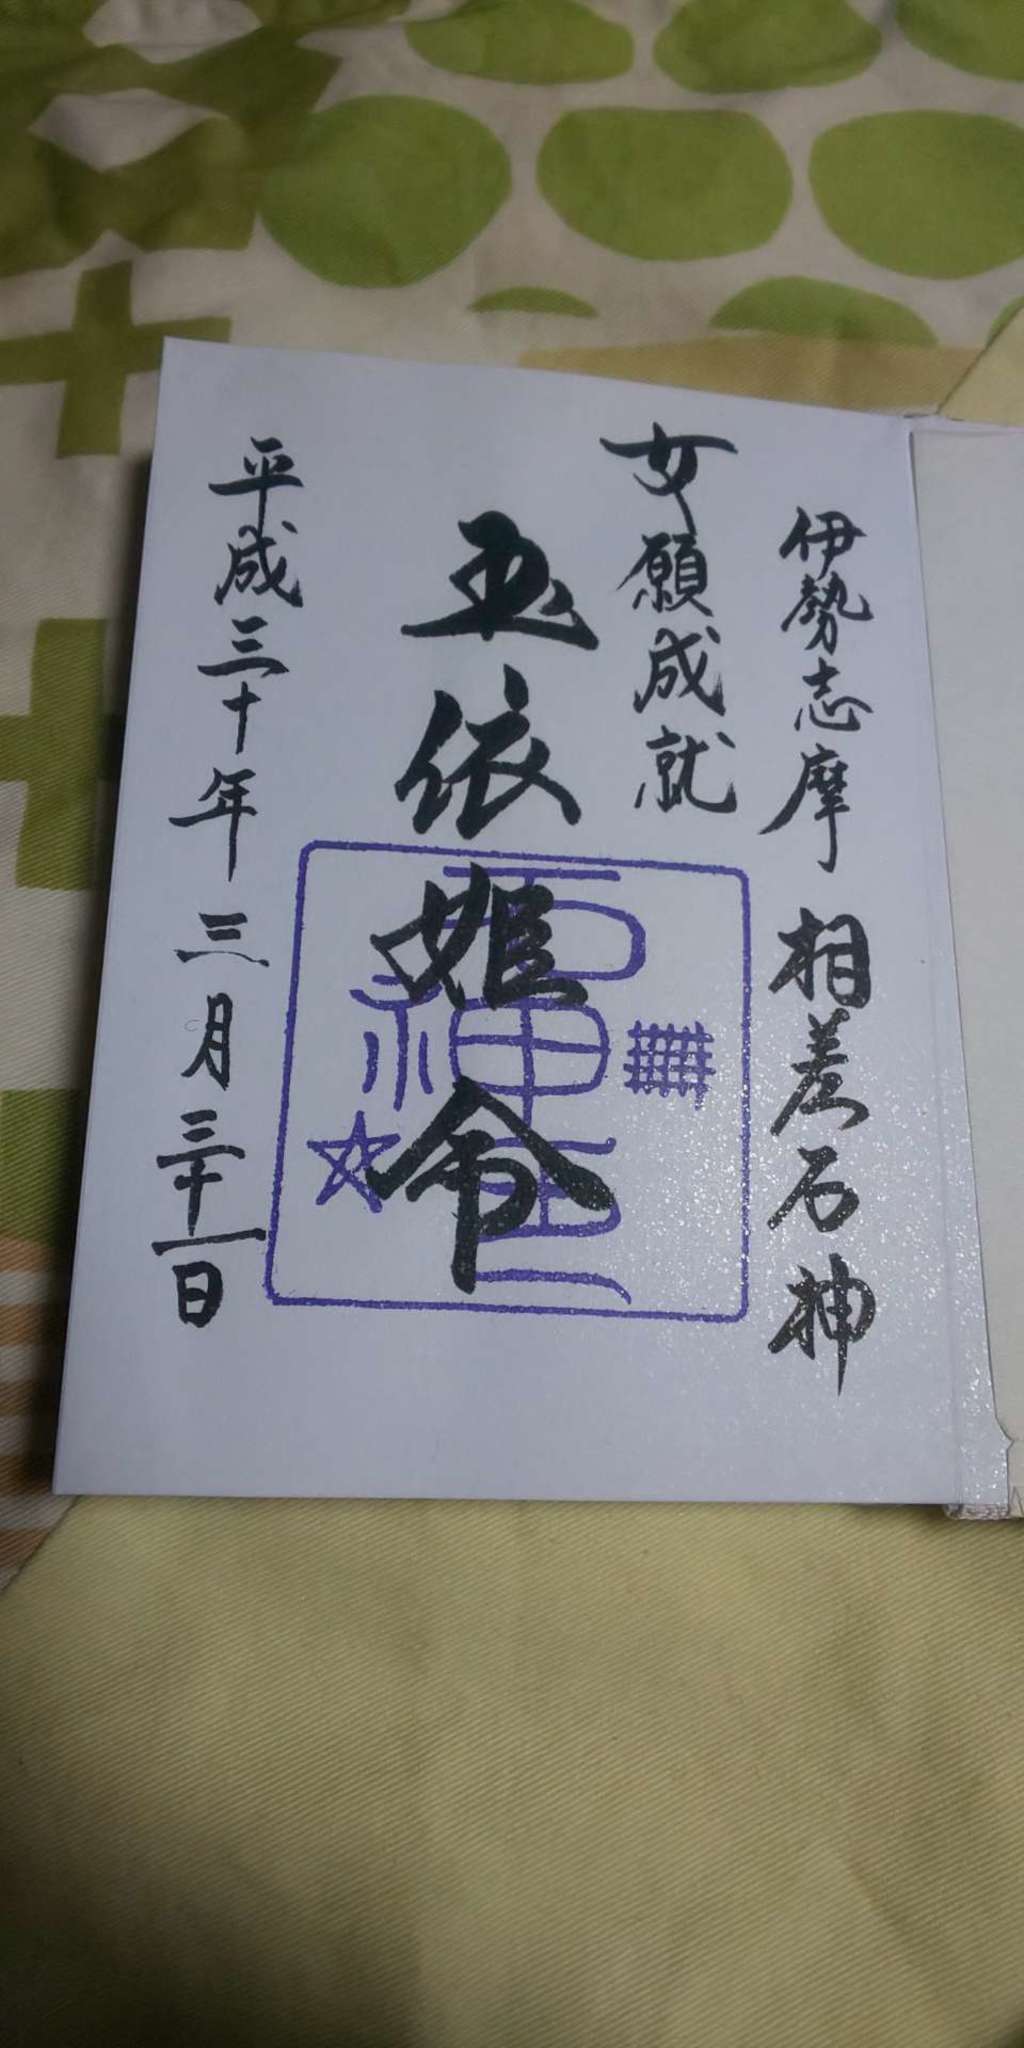 伊勢志摩 相差石神
女願成就
玉依姫命
平成三十年 三月 三十一日
石神